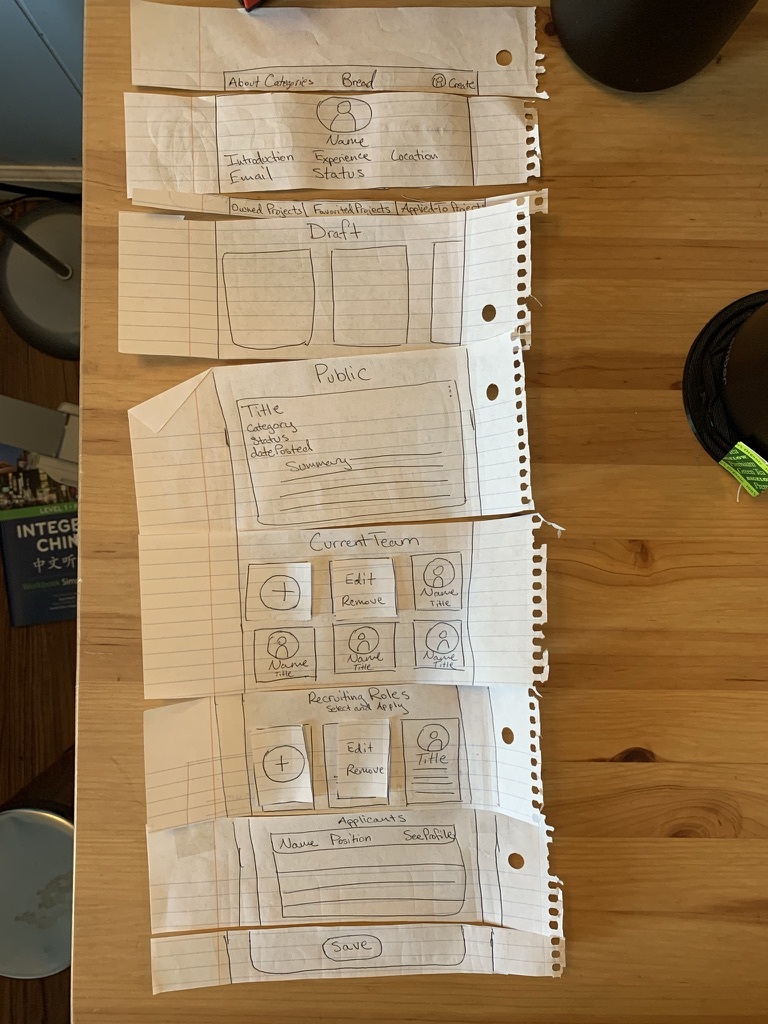 About Categories Bread Create
Name
Introduction Experience Location
Email Status
Owned Projects Favorited Projects Applied-To Projects
Draft
Public
Title
Category
Status
datePosted
Summary
Current Team
+ Edit Name
Remove Title
Name Name Name
Title Title Title
Recruiting Roles
Select and Apply
+ Edit Title
Remove
Applicants
Name Position See Profile
Save
LEVEL 1
INTEGR
CHIN
中文听
Workbook Sim